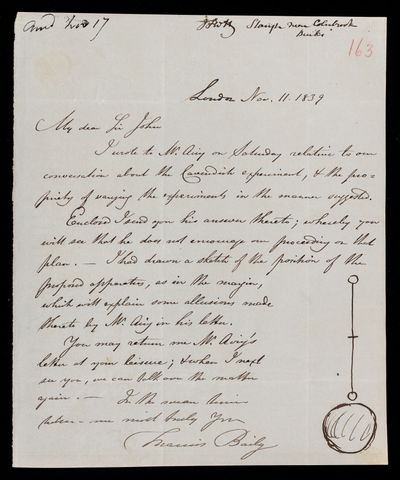 Slough near Colnbrook
Bucks
163
London Nov. 11. 1839
My dear Sir John
I wrote to Mr. Airy on Saturday relative to our
conversation about the Cavendish experiment, & the pro-
priety of varying the experiments in the manner suggested.
Enclosed I send you his answer thereto; whereby you
will see that he does not encourage our proceeding on that
plan. — I had drawn a sketch of the position of the
proposed apparatus, as in the margin,
which will explain some allusions made
thereto by Mr. Airy in his letter.
You may return me Mr. Airy's
letter at your leisure; & when I next
see you, we can talk over the matter
again. — In the mean time
believe me most truly Yours
Francis Baily